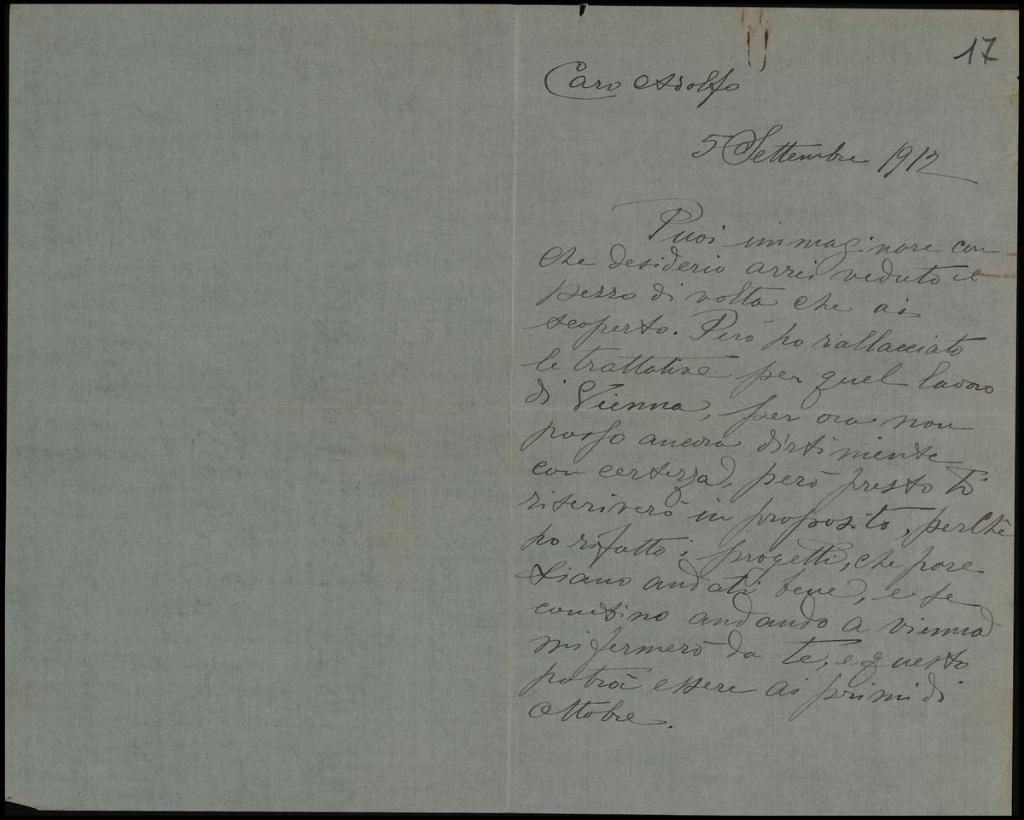 17
Caro Adolfo
5 Settembre 1912
Puoi immaginare con
che desiderio avrei veduto il
pezzo di volta che ai
scoperto. Però ho riallacciato
le trattative per quel lavoro
di Vienna, per ora non
posso ancora dirti niente
con certezza, però presto ti
riscriverò in proposito, perchè
ho rifatto i progetti, che pare
siano andati bene, e se
combino andando a vienna
mi fermerò da te, e questo
potrà essere ai primi di
ottobre.